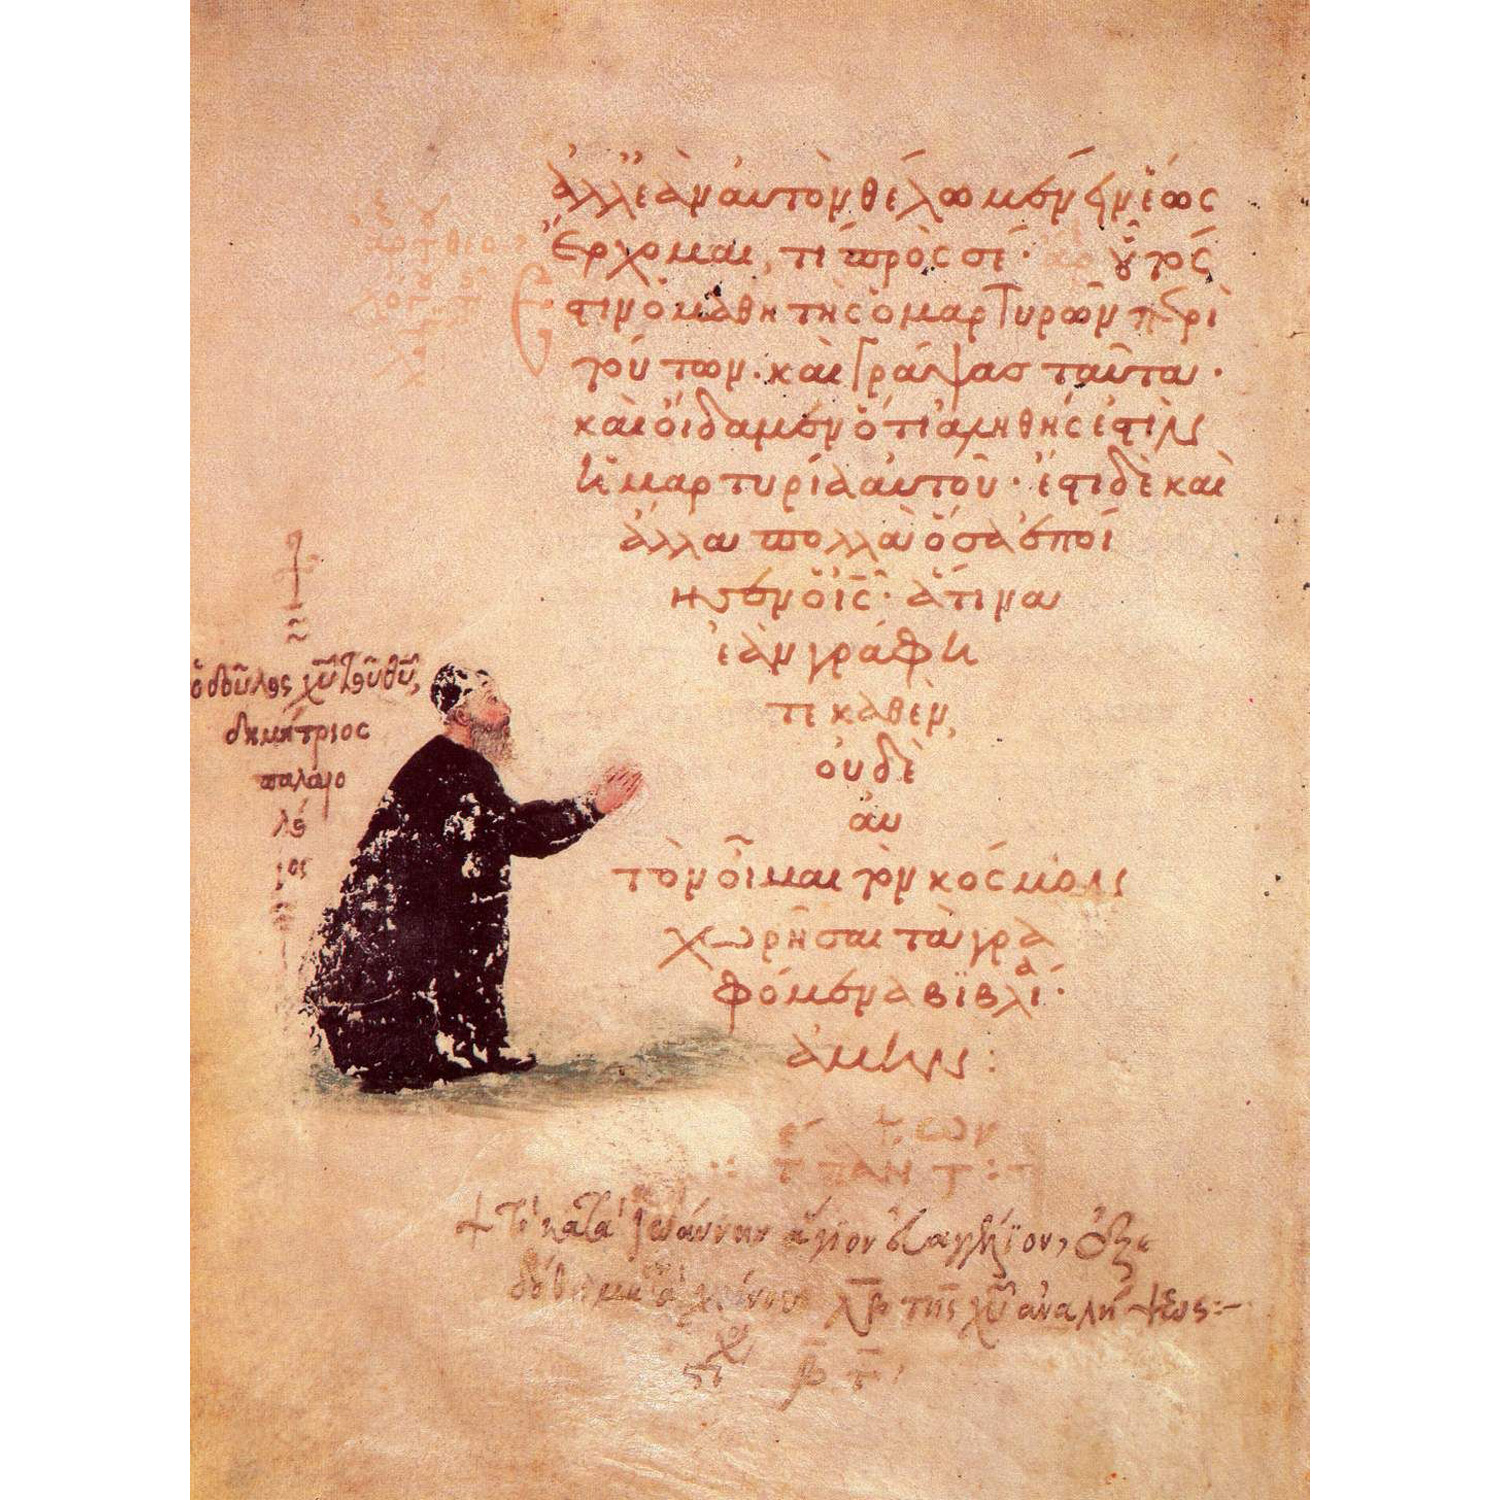 ἀλλ' ἐὰν αὐτὸν θέλω μένειν ἕως
ἔρχομαι, τί πρὸς σέ· οὗτός
ἐστιν ὁ μαθητὴς ὁ μαρτυρῶν περὶ
τούτων· καὶ γράψας ταῦτα·
καὶ οἴδαμεν ὅτι ἀληθής ἐστιν
ἡ μαρτυρία αὐτοῦ· ἔστι δὲ καὶ
ἄλλα πολλὰ ὅσα ἐποί
ησεν ὁ ις· ἅτινα
ἐὰν γράφη
ται καθὲν,
οὐδὲ
αὐ
τὸν οἶμαι τὸν κόσμον
χωρῆσαι τὰ γρα
φόμενα βιβλία·
ἀμήν:
ὁ δοῦλος χῦ τοῦ θῦ,
δημήτριος
παλαιο
λό
γος
+ Τὸ κατὰ Ἰωάννην ἅγιον εὐαγγέλιον, ἐξε
δόθη μετὰ χρόνους λβ τῆς χῦ ἀναλήψεως:-